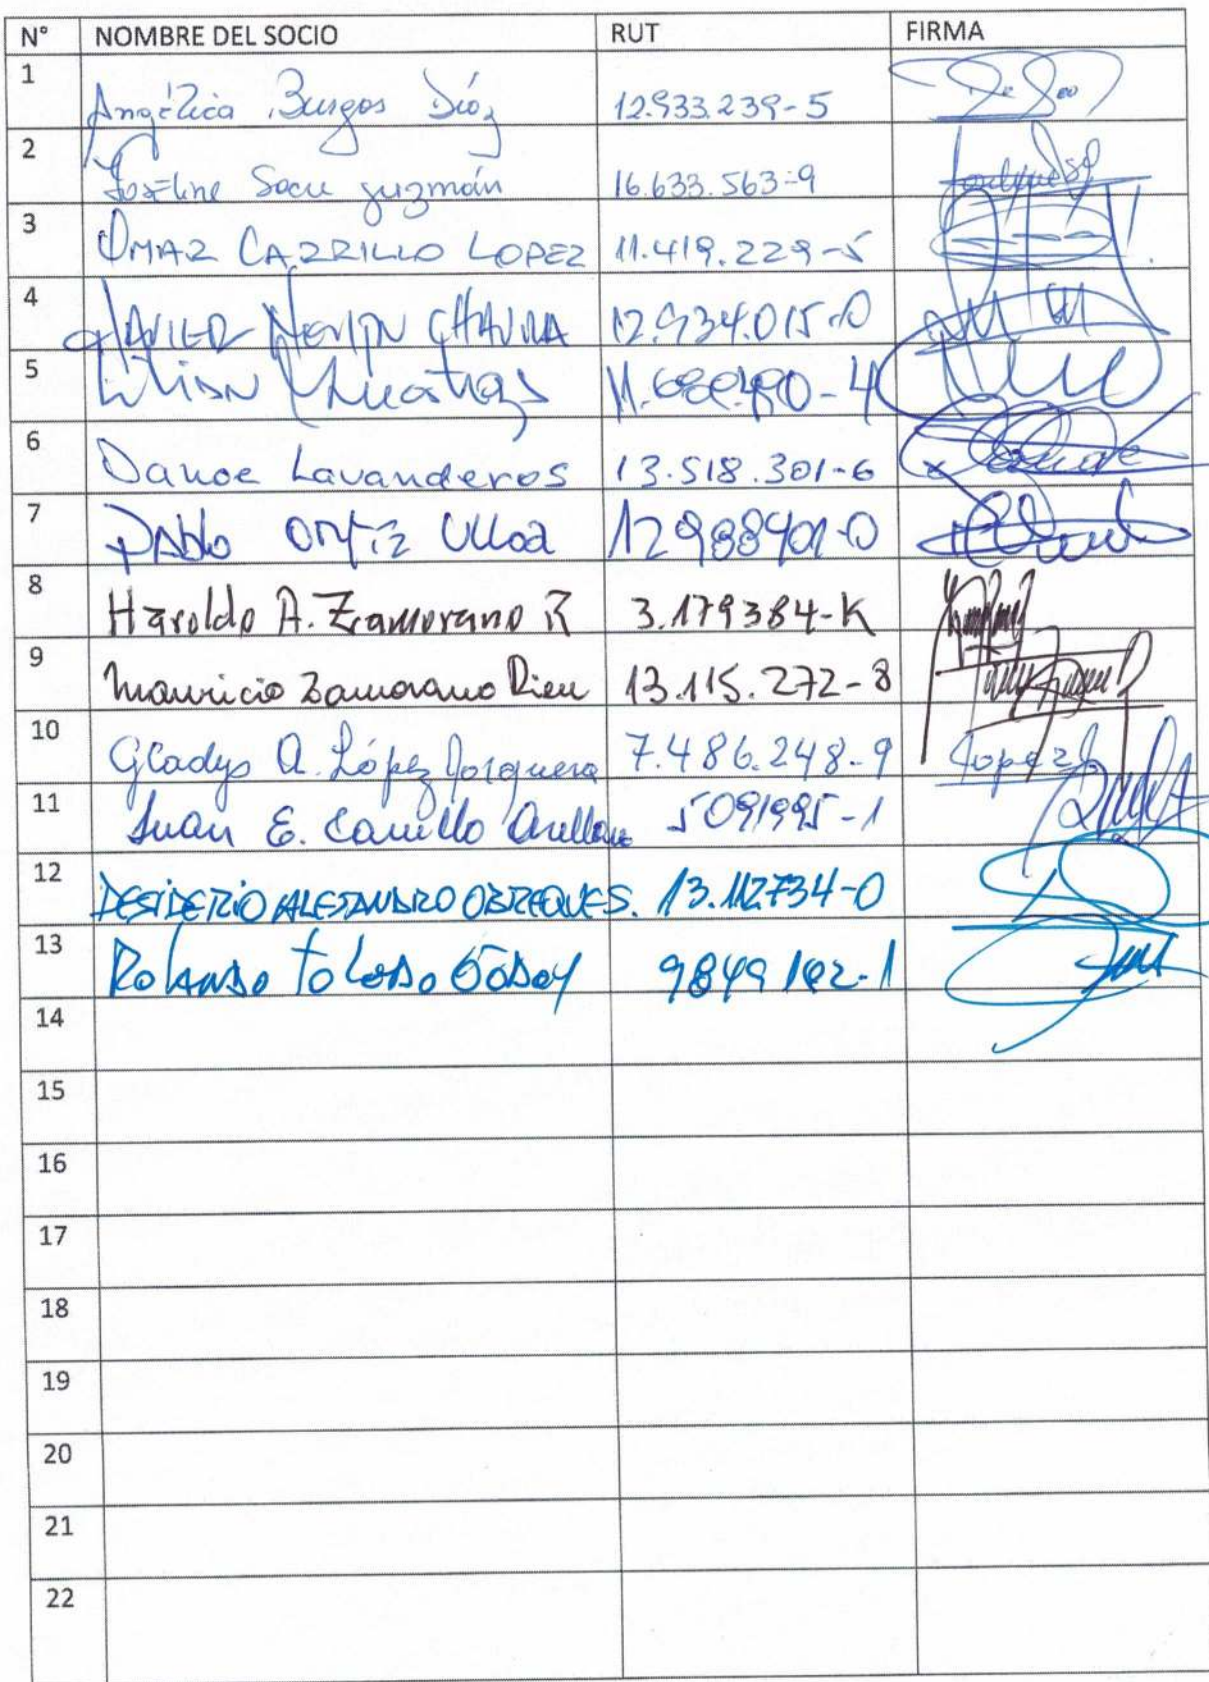 N° NOMBRE DEL SOCIO RUT FIRMA
1 Angélica Burgos Díaz 12.933.239-5
2 Guzmán 16.633.563-9
3 OMAR CARRILLO LOPEZ 11.419.229-5
4 JAVIER 12.934.015-0
5 Lilian
6 Danoe Lavanderos 13.518.301-6
7 Pablo Ortiz Ulloa 12988401-0
8 Haroldo A. Zamorano R 3.179384-K
9 Mauricio Zamorano Rieu 13.115.272-8
10 Gladys A. López Jorquera 7.486.248-9 Lopez
11 Juan E. Carrillo Arellano 5091995-1
12 DESIDERIO ALEJANDRO OBREQUE S. 13.112734-0
13 Rolando Toledo Godoy
14
15
16
17
18
19
20
21
22